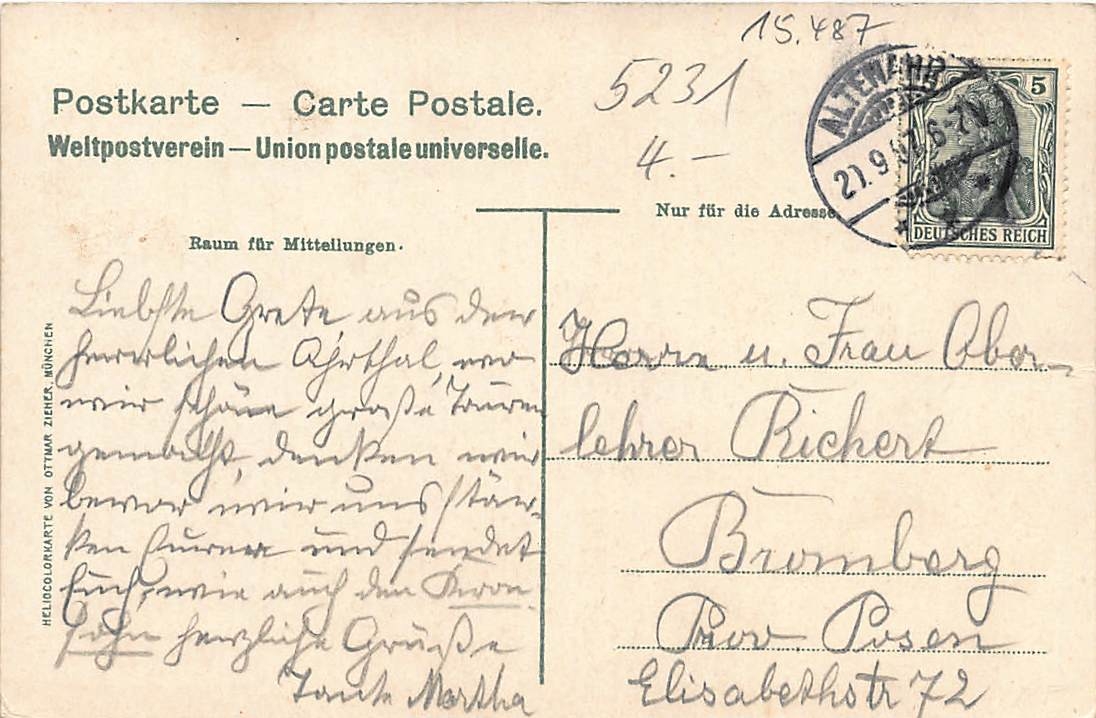 15.487
5231
4.-
Postkarte — Carte Postale.
Weltpostverein — Union postale universelle.
ALTENAHR
21.9.07.6-7N
5
DEUTSCHES REICH
Nur für die Adresse
Raum für Mitteilungen.
Liebste Grete aus dem
herrlichen Ahrthal, wo
wir schöne große Touren
gemacht, denken wir
bevor wir uns stär-
ken Eurer und sendet
Euch, wie auch den Kron-
sohn herzliche Grüße
Tante Martha
Herrn u. Frau Ober-
lehrer Richert
Bromberg
Prov. Posen
Elisabethstr 72
HELIOCOLORKARTE VON OTTMAR ZIEHER, MÜNCHEN